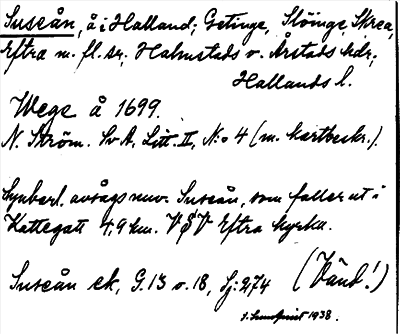 Suseån, å i Halland; Getinge, Slöinge, Skrea,
Eftra m. fl. sr, Halmstads o. Årstads hdr,
Hallands l.
Wege å 1699.
N. Ström. Sv A, Litt. II, N:o 4 (m. kartbeskr.).
Synbarl. avsågs nuv. Suseån, som faller ut i
Kattegatt 4,9 km. V S V Eftra kyrka.
Suseån ek, G. 13 o. 18, Sj: 274 (Vänd!)
J. Lundquist 1938.